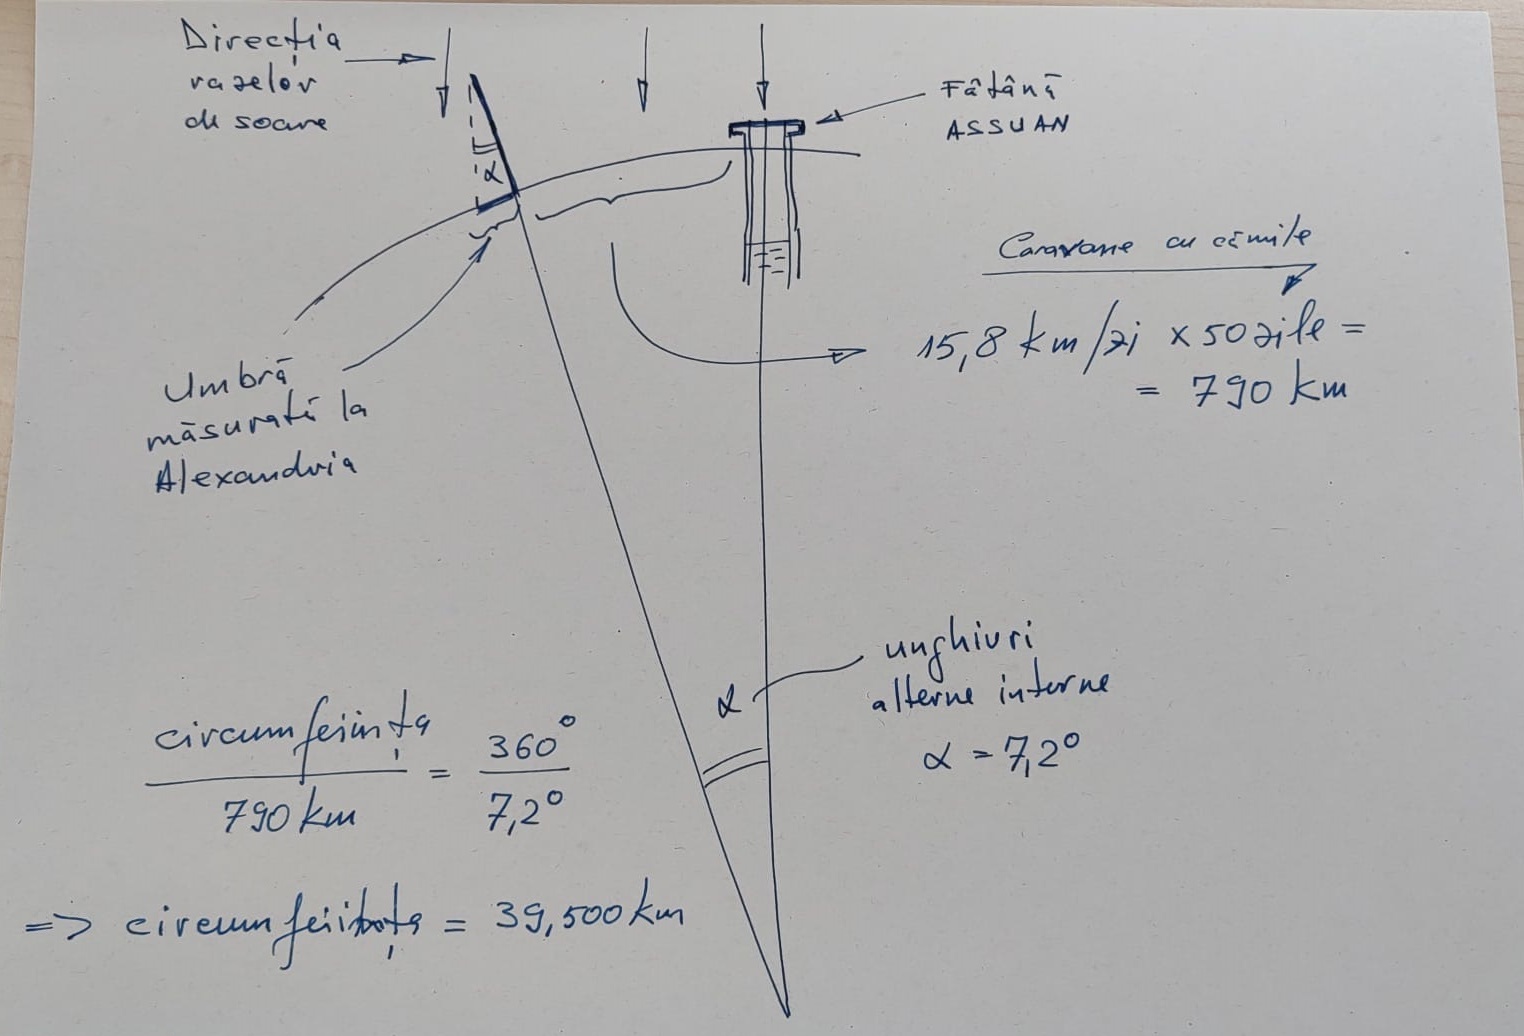 Direcția
razelor
de soare
α
Fântână
ASSUAN
Caravane cu cămile
15,8 km/zi x 50 zile =
= 790 km
Umbră
măsurată la
Alexandria
unghiuri
alterne interne
α = 7,2°
α
circumferința = 360°
790 km 7,2°
=> circumferința = 39,500 km